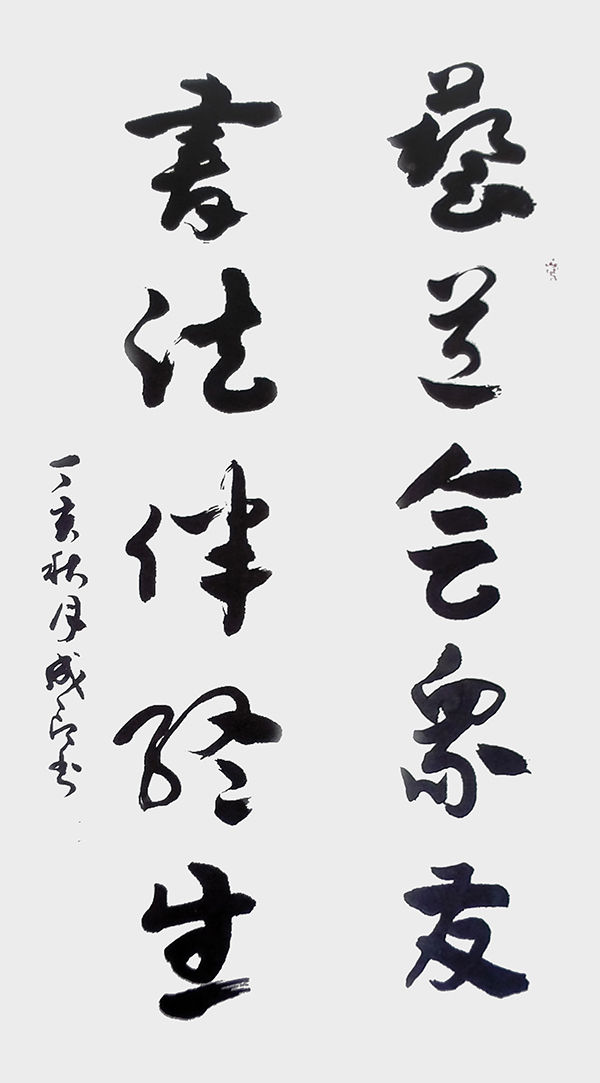 藝道会衆友
書法伴終生
丁亥秋月成らの書